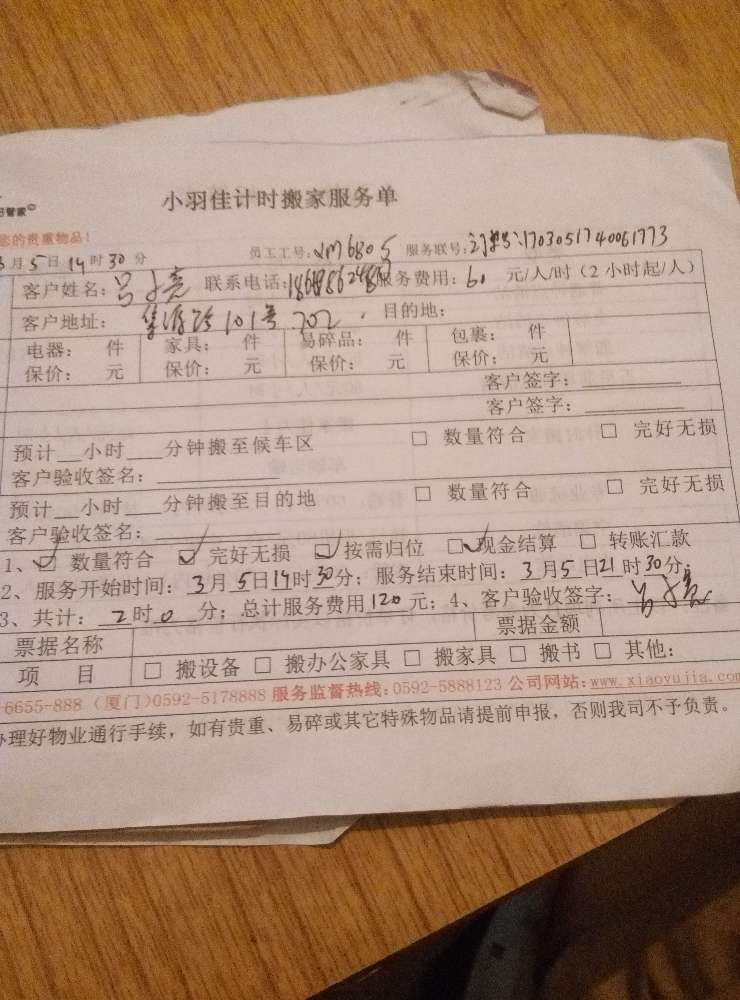 小羽佳计时搬家服务单
的贵重物品!
3月5日14时30分 员工工号:XM6805 服务联号:订单号:1703051740061773
客户姓名: 联系电话: 服务费用:60 元/人/时(2小时起/人)
客户地址: 101号702 目的地:
电器: 件 家具: 件 易碎品: 件 包裹: 件
保价: 元 保价: 元 保价: 元 保价: 元
客户签字:
客户签字:
预计__小时___分钟搬至候车区 □ 数量符合 □ 完好无损
客户验收签名:
预计__小时___分钟搬至目的地 □ 数量符合 □ 完好无损
客户验收签名:
1、☑ 数量符合 ☑ 完好无损 ☑ 按需归位 ☑ 现金结算 □ 转账汇款
2、服务开始时间:3月5日14时30分;服务结束时间:3月5日21时30分;
3、共计:2时0分;总计服务费用120元;4、客户验收签字:
票据名称 票据金额
项 目 □ 搬设备 □ 搬办公家具 □ 搬家具 □ 搬书 □ 其他:
-6655-888(厦门)0592-5178888 服务监督热线:0592-5888123 公司网站:www.xiaoyujia.com
办理好物业通行手续,如有贵重、易碎或其它特殊物品请提前申报,否则我司不予负责。